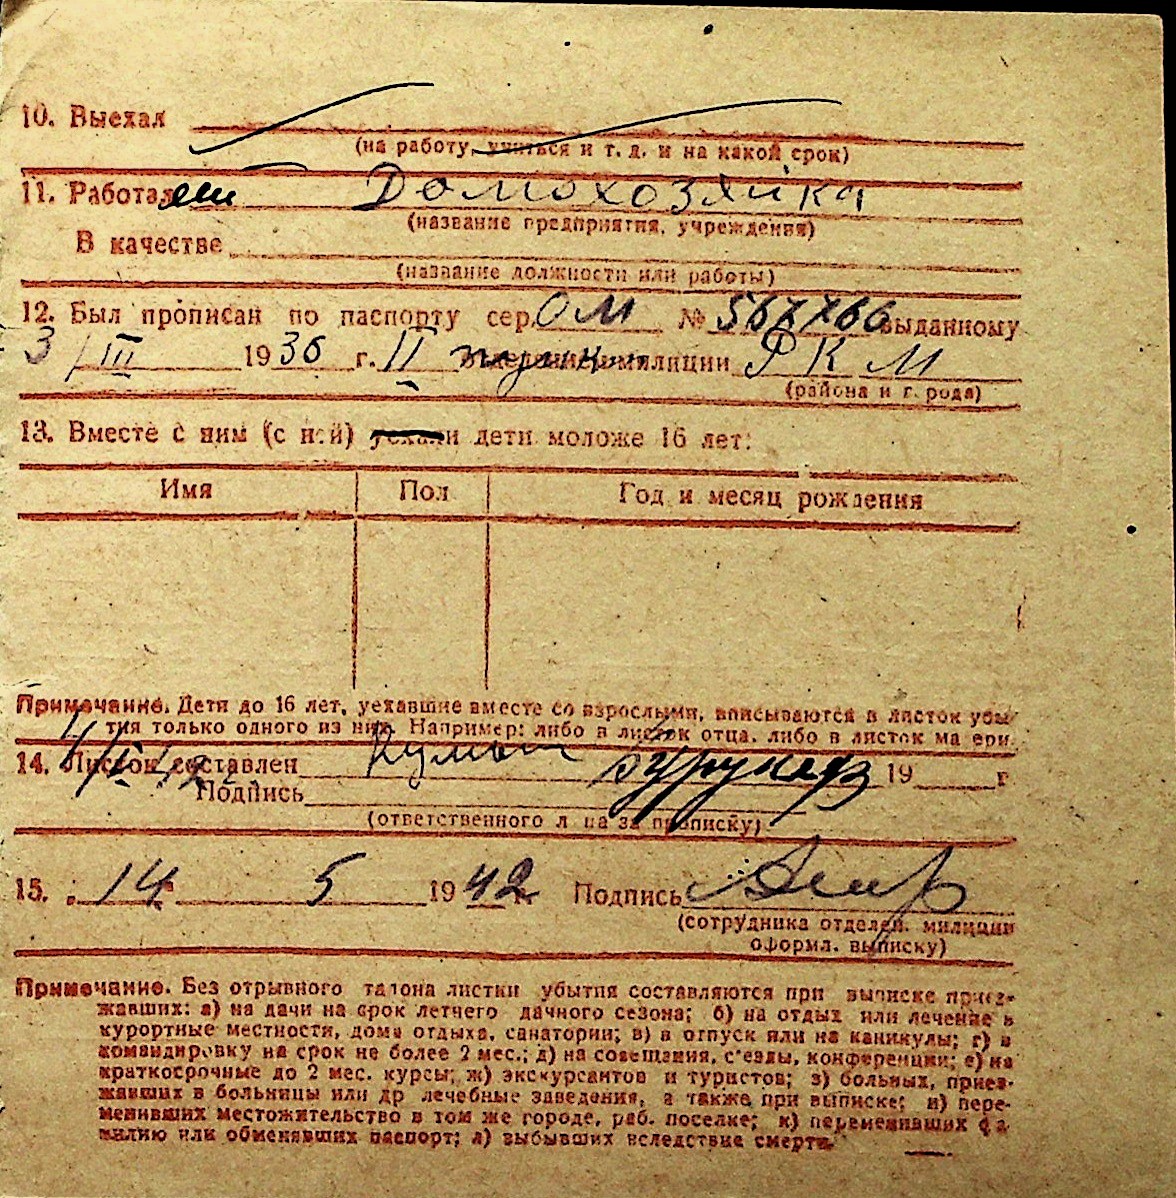 10. Выехал
(на работу, учиться и т. д. и на какой срок)
11. Работал Домохозяйка
(название предприятия, учреждения)
В качестве
(название должности или работы)
12. Был прописан по паспорту сер. ОМ № выданному
3/III 1936 г. II милиции РКМ
(района и города)
13. Вместе с ним (с ней) уехали дети моложе 16 лет:
Имя Пол Год и месяц рождения
Примечание. Дети до 16 лет, уехавшие вместе со взрослыми, вписываются в листок убы-
тия только одного из них. Например: либо в листок отца, либо в листок матери.
14. Листок составлен 19 г
Подпись
(ответственного лица за прописку)
15. 14 5 1942 Подпись
(сотрудника отделен. милиции
оформл. выписку)
Примечание. Без отрывного талона листки убытия составляются при выписке приез-
жавших: а) на дачи на срок летнего дачного сезона; б) на отдых или лечение в
курортные местности, дома отдыха, санатории; в) в отпуск или на каникулы; г) в
командировку на срок не более 2 мес.; д) на совещания, с'езды, конференции; е) на
краткосрочные до 2 мес. курсы; ж) экскурсантов и туристов; з) больных, приез-
жавших в больницы или др лечебные заведения, а также при выписке; и) пере-
менивших местожительство в том же городе, раб. поселке; к) переменивших фа-
милию или обменявших паспорт; л) выбывших вследствие смерти.